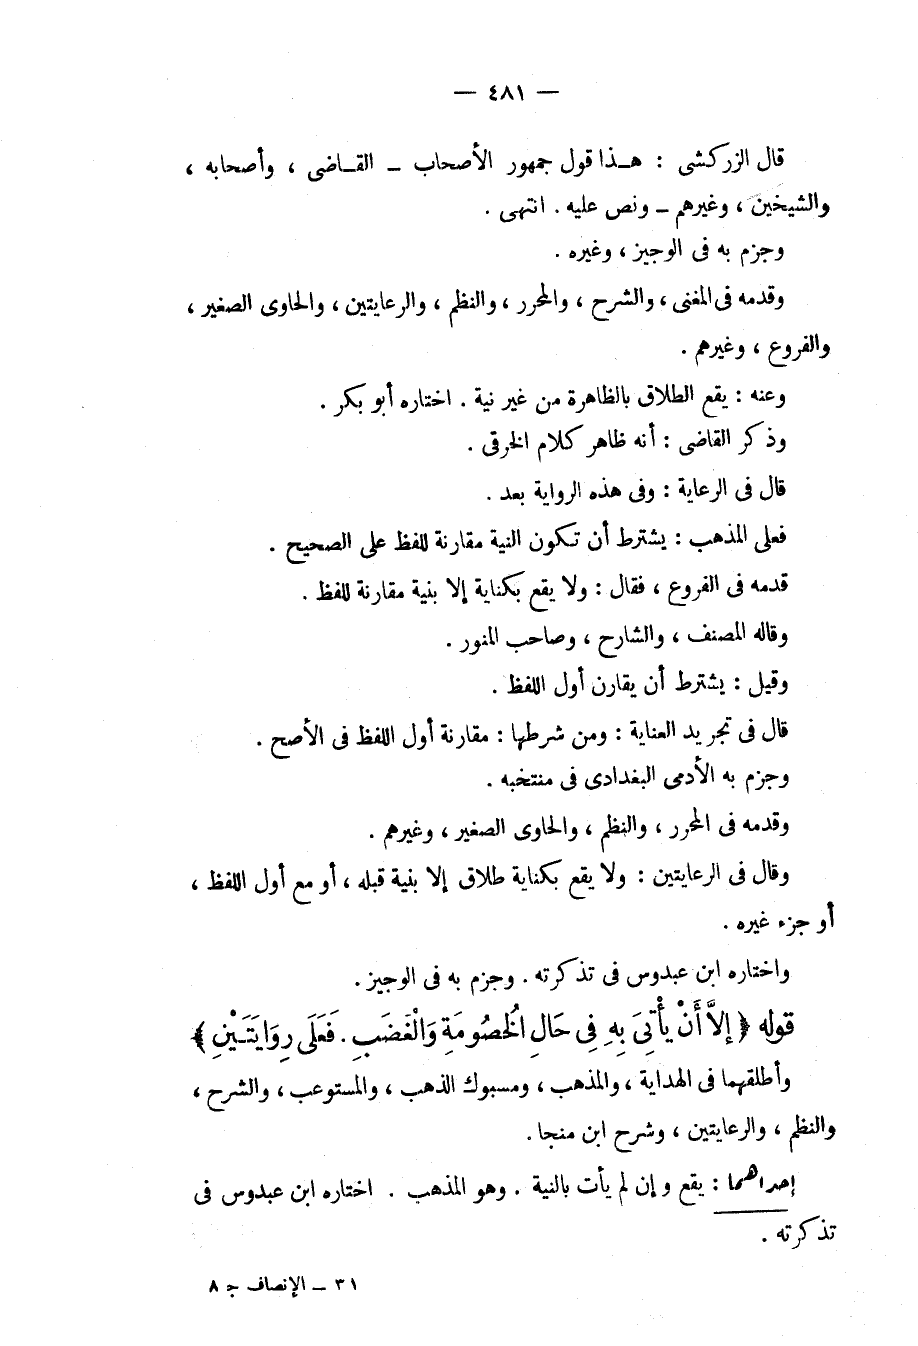 — ٤٨١ —
قال الزركشى : هـذا قول جمهور الأصحاب – القـاضى ، وأصحابه ،
والشيخين ، وغيرهم – ونص عليه . انتهى .
وجزم به فى الوجيز ، وغيره .
وقدمه فى المغنى ، والشرح ، والمحرر ، والنظم ، والرعايتين ، والحاوى الصغير ،
والفروع ، وغيرهم .
وعنه : يقع الطلاق بالظاهرة من غير نية . اختاره أبو بكر .
وذكر القاضى : أنه ظاهر كلام الخرقى .
قال فى الرعاية : وفى هذه الرواية بعد .
فعلى المذهب : يشترط أن تكون النية مقارنة للفظ على الصحيح .
قدمه فى الفروع ، فقال : ولا يقع بكناية إلا بنية مقارنة للفظ .
وقاله المصنف ، والشارح ، وصاحب المنور .
وقيل : يشترط أن يقارن أول اللفظ .
قال فى تجريد العناية : ومن شرطها : مقارنة أول اللفظ فى الأصح .
وجزم به الأدمى البغدادى فى منتخبه .
وقدمه فى المحرر ، والنظم ، والحاوى الصغير ، وغيرهم .
وقال فى الرعايتين : ولا يقع بكناية طلاق إلا بنية قبله ، أو مع أول اللفظ ،
أو جزء غيره .
واختاره ابن عبدوس فى تذكرته . وجزم به فى الوجيز .
قوله ﴿ إِلاَّ أَنْ يَأْتِىَ بِهِ فِى حَالِ الْخُصُومَةِ وَالْغَضَبِ . فَعَلَى رِوَايَتَـيْنِ ﴾
وأطلقهما فى الهداية ، والمذهب ، ومسبوك الذهب ، والمستوعب ، والشرح ،
والنظم ، والرعايتين ، وشرح ابن منجا .
إحداهما : يقع وإن لم يأت بالنية . وهو المذهب . اختاره ابن عبدوس فى
تذكرته .
٣١ – الإنصاف ج ٨